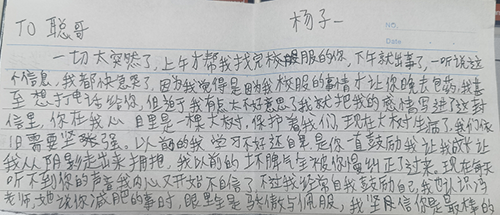 TO 聪哥 杨子一
NO.
Date
一切太突然了,上午才帮我找完校服的你,下午就出事了,一听说这
个信息,我都快急哭了,因为我觉得是因为我校服的事情才让你晚去,我甚
至想打电话给你,但鉴于我有点不好意思,我就把我的感情写进了这封
信里,你在我心目里是一棵大树,保护着我们,现在大树生病了,我们依
旧需要坚强。以前的我学习不好还自卑是你一直鼓励我让我成长让
我从阴影走出来拥抱,我以前的坏脾气全被你温纠正了过来。现在每天
听不到你的声音我内心又开始不自信了,不过我经常自我鼓励自己,我也认识冯
老师,她说你减肥的事时,眼里全是骄傲与佩服,我坚信你是最棒的